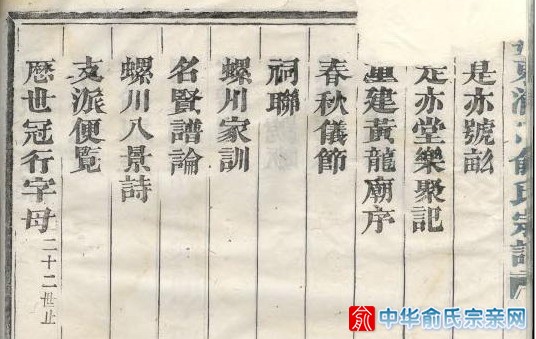 俞氏宗譜
是亦號
是亦堂樂聚記
重建黃龍廟序
春秋儀節
祠聯
螺川家訓
名賢譜論
螺川八景詩
支派便覧
歷世冠行字母 二十二世止
俞 中华俞氏宗亲网